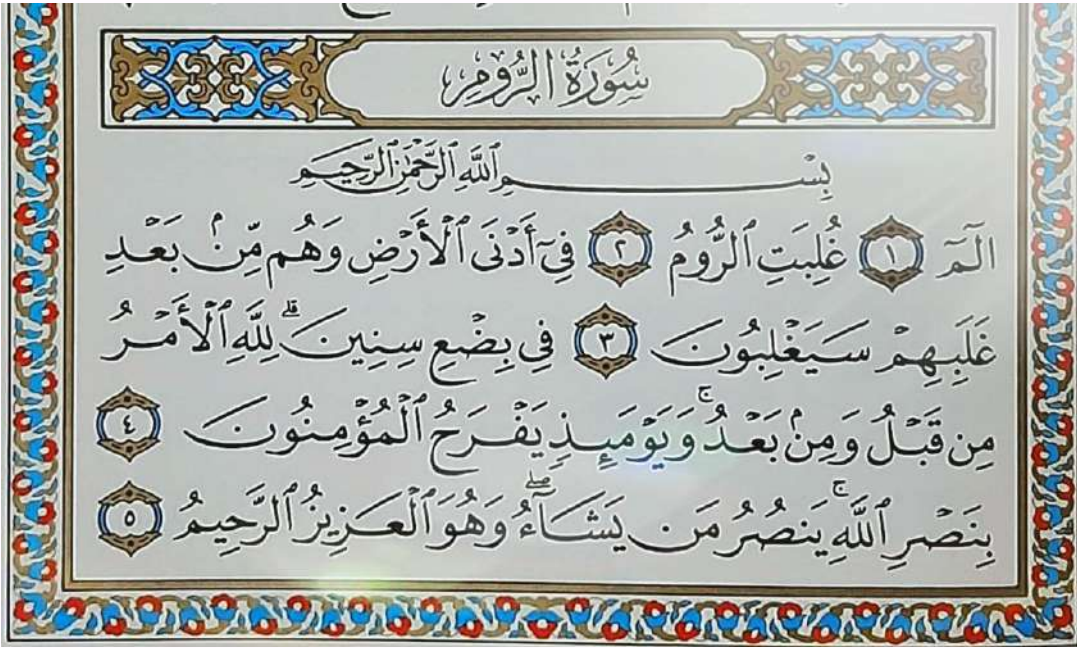 سُورَةُ الرُّومِ
بِسْمِ ٱللَّهِ ٱلرَّحْمَٰنِ ٱلرَّحِيمِ
الٓمٓ ١ غُلِبَتِ ٱلرُّومُ ٢ فِىٓ أَدْنَى ٱلْأَرْضِ وَهُم مِّنۢ بَعْدِ
غَلَبِهِمْ سَيَغْلِبُونَ ٣ فِى بِضْعِ سِنِينَ ۗ لِلَّهِ ٱلْأَمْرُ
مِن قَبْلُ وَمِنۢ بَعْدُ ۚ وَيَوْمَئِذٍ يَفْرَحُ ٱلْمُؤْمِنُونَ ٤
بِنَصْرِ ٱللَّهِ ۚ يَنصُرُ مَن يَشَآءُ ۖ وَهُوَ ٱلْعَزِيزُ ٱلرَّحِيمُ ٥